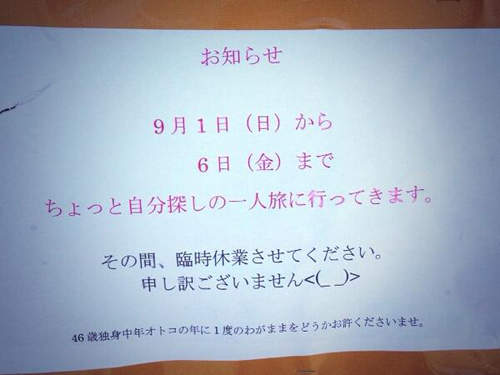 お知らせ
9月1日（日）から
6日（金）まで
ちょっと自分探しの一人旅に行ってきます。
その間、臨時休業させてください。
申し訳ございません<(_ _)>
46歳独身中年オトコの年に1度のわがままをどうかお許しくださいませ。